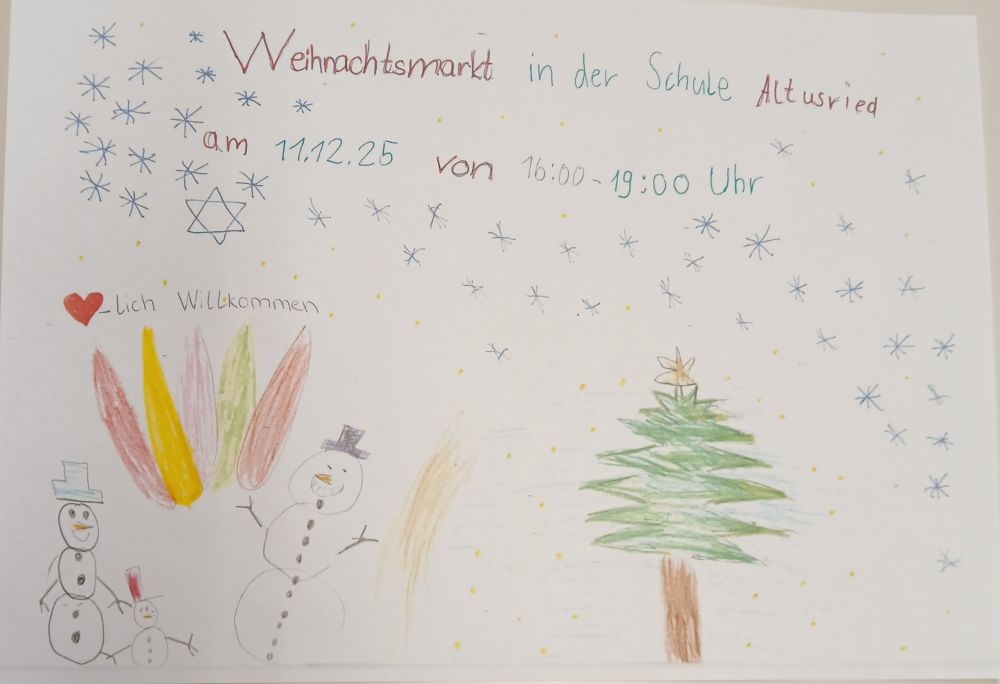 Weihnachtsmarkt in der Schule Altusried
am 11.12.25 von 16:00-19:00 Uhr
-lich Willkommen